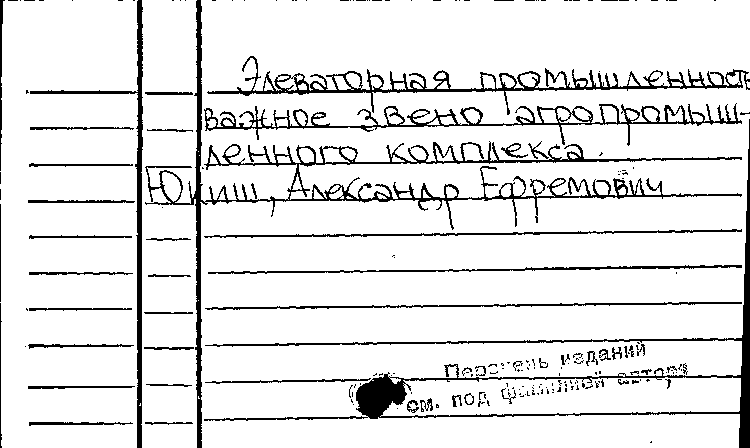 Элеваторная промышленность
важное звено агропромыш-
ленного комплекса.
Юкиш, Александр Ефремович
Перечень изданий
см. под фамилией автора